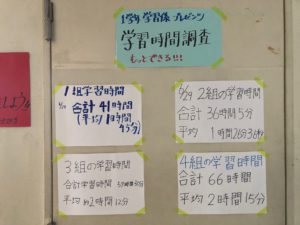 1学年 学習係 プレゼンツ
学習時間調査
もっとできる!!!
しよう
1組学習時間
合計 41時間
(平均 1時間
45分)
6/29 2組の学習時間
合計 36時間5分
平均 1時間26分36秒
3組の学習時間
合計学習時間
平均 約2時間12分
4組の学習時間
合計 66時間
平均 2時間15分